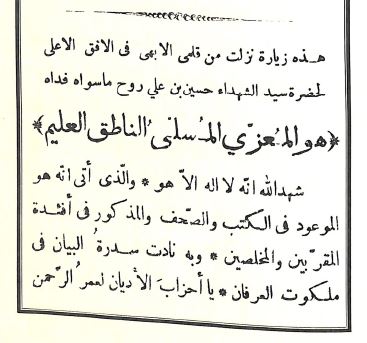 هذه زيارة نزلت من قلمى الابهى فى الافق الاعلى
لحضرة سيد الشهداء حسين بن علي روح ماسواه فداه
﴿هو المُعزّي المُسلّى الناطق العليم﴾
شهدالله انّه لا اله الاّ هو * والّذى أتى انّه هو
الموعود فى الكتب والصّحف والمذكور فى أفئدة
المقرّبين والمخلصين * وبه نادت سدرةُ البيان فى
ملكوت العرفان * يا أحزابَ الأديان لعمرُ الرّحمن